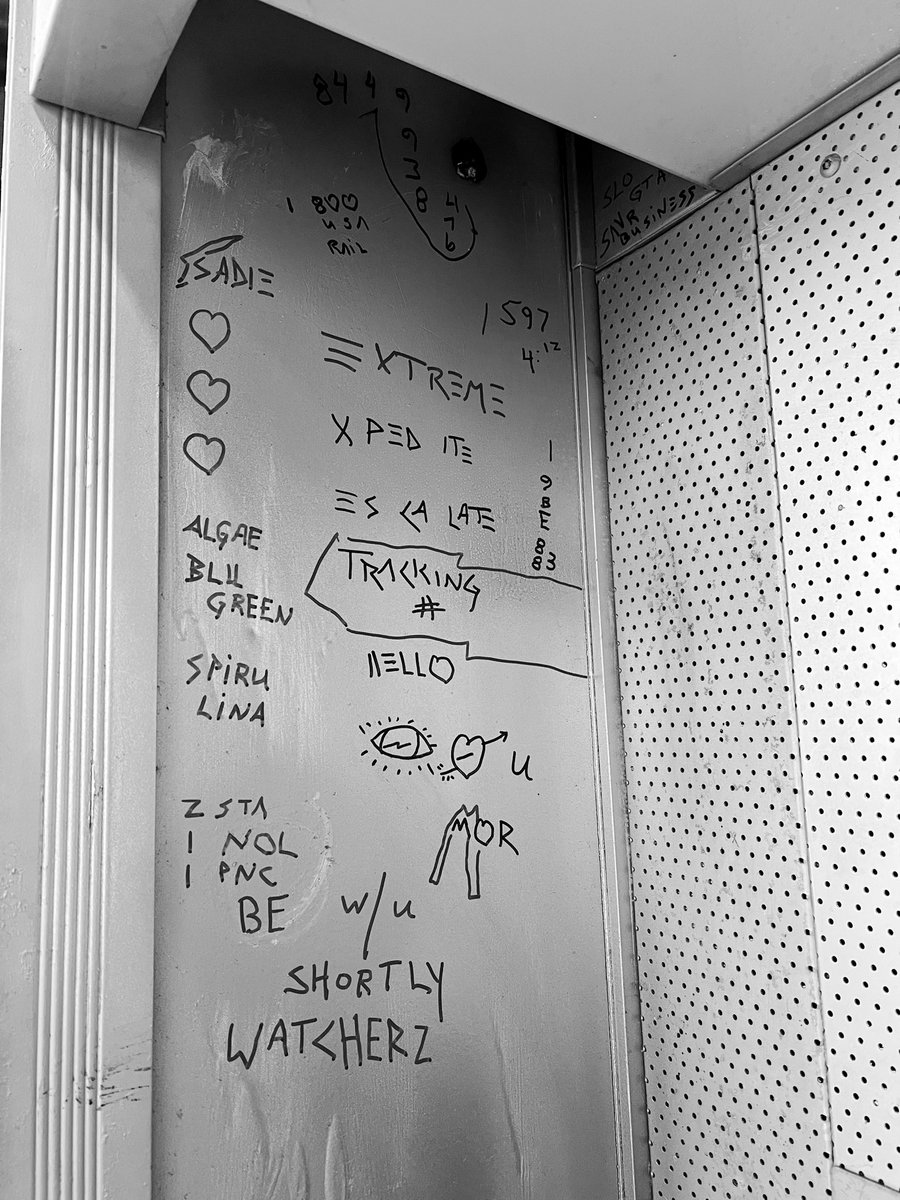 84 4 9
9
3
8 4
7
6
1 800
USA
RAIL
SADIE
1597
4:12
EXTREME
XPED ITE
ES CA LATE
1
9
8
E
8
83
TRACKING
#
ALGAE
BLU
GREEN
SPIRU
LINA
HELLO
U
MOR
2 STA
1 NOL
1 PNC
BE W/U
SHORTLY
WATCHERZ
SLO GTA
SNR
BUSINESS